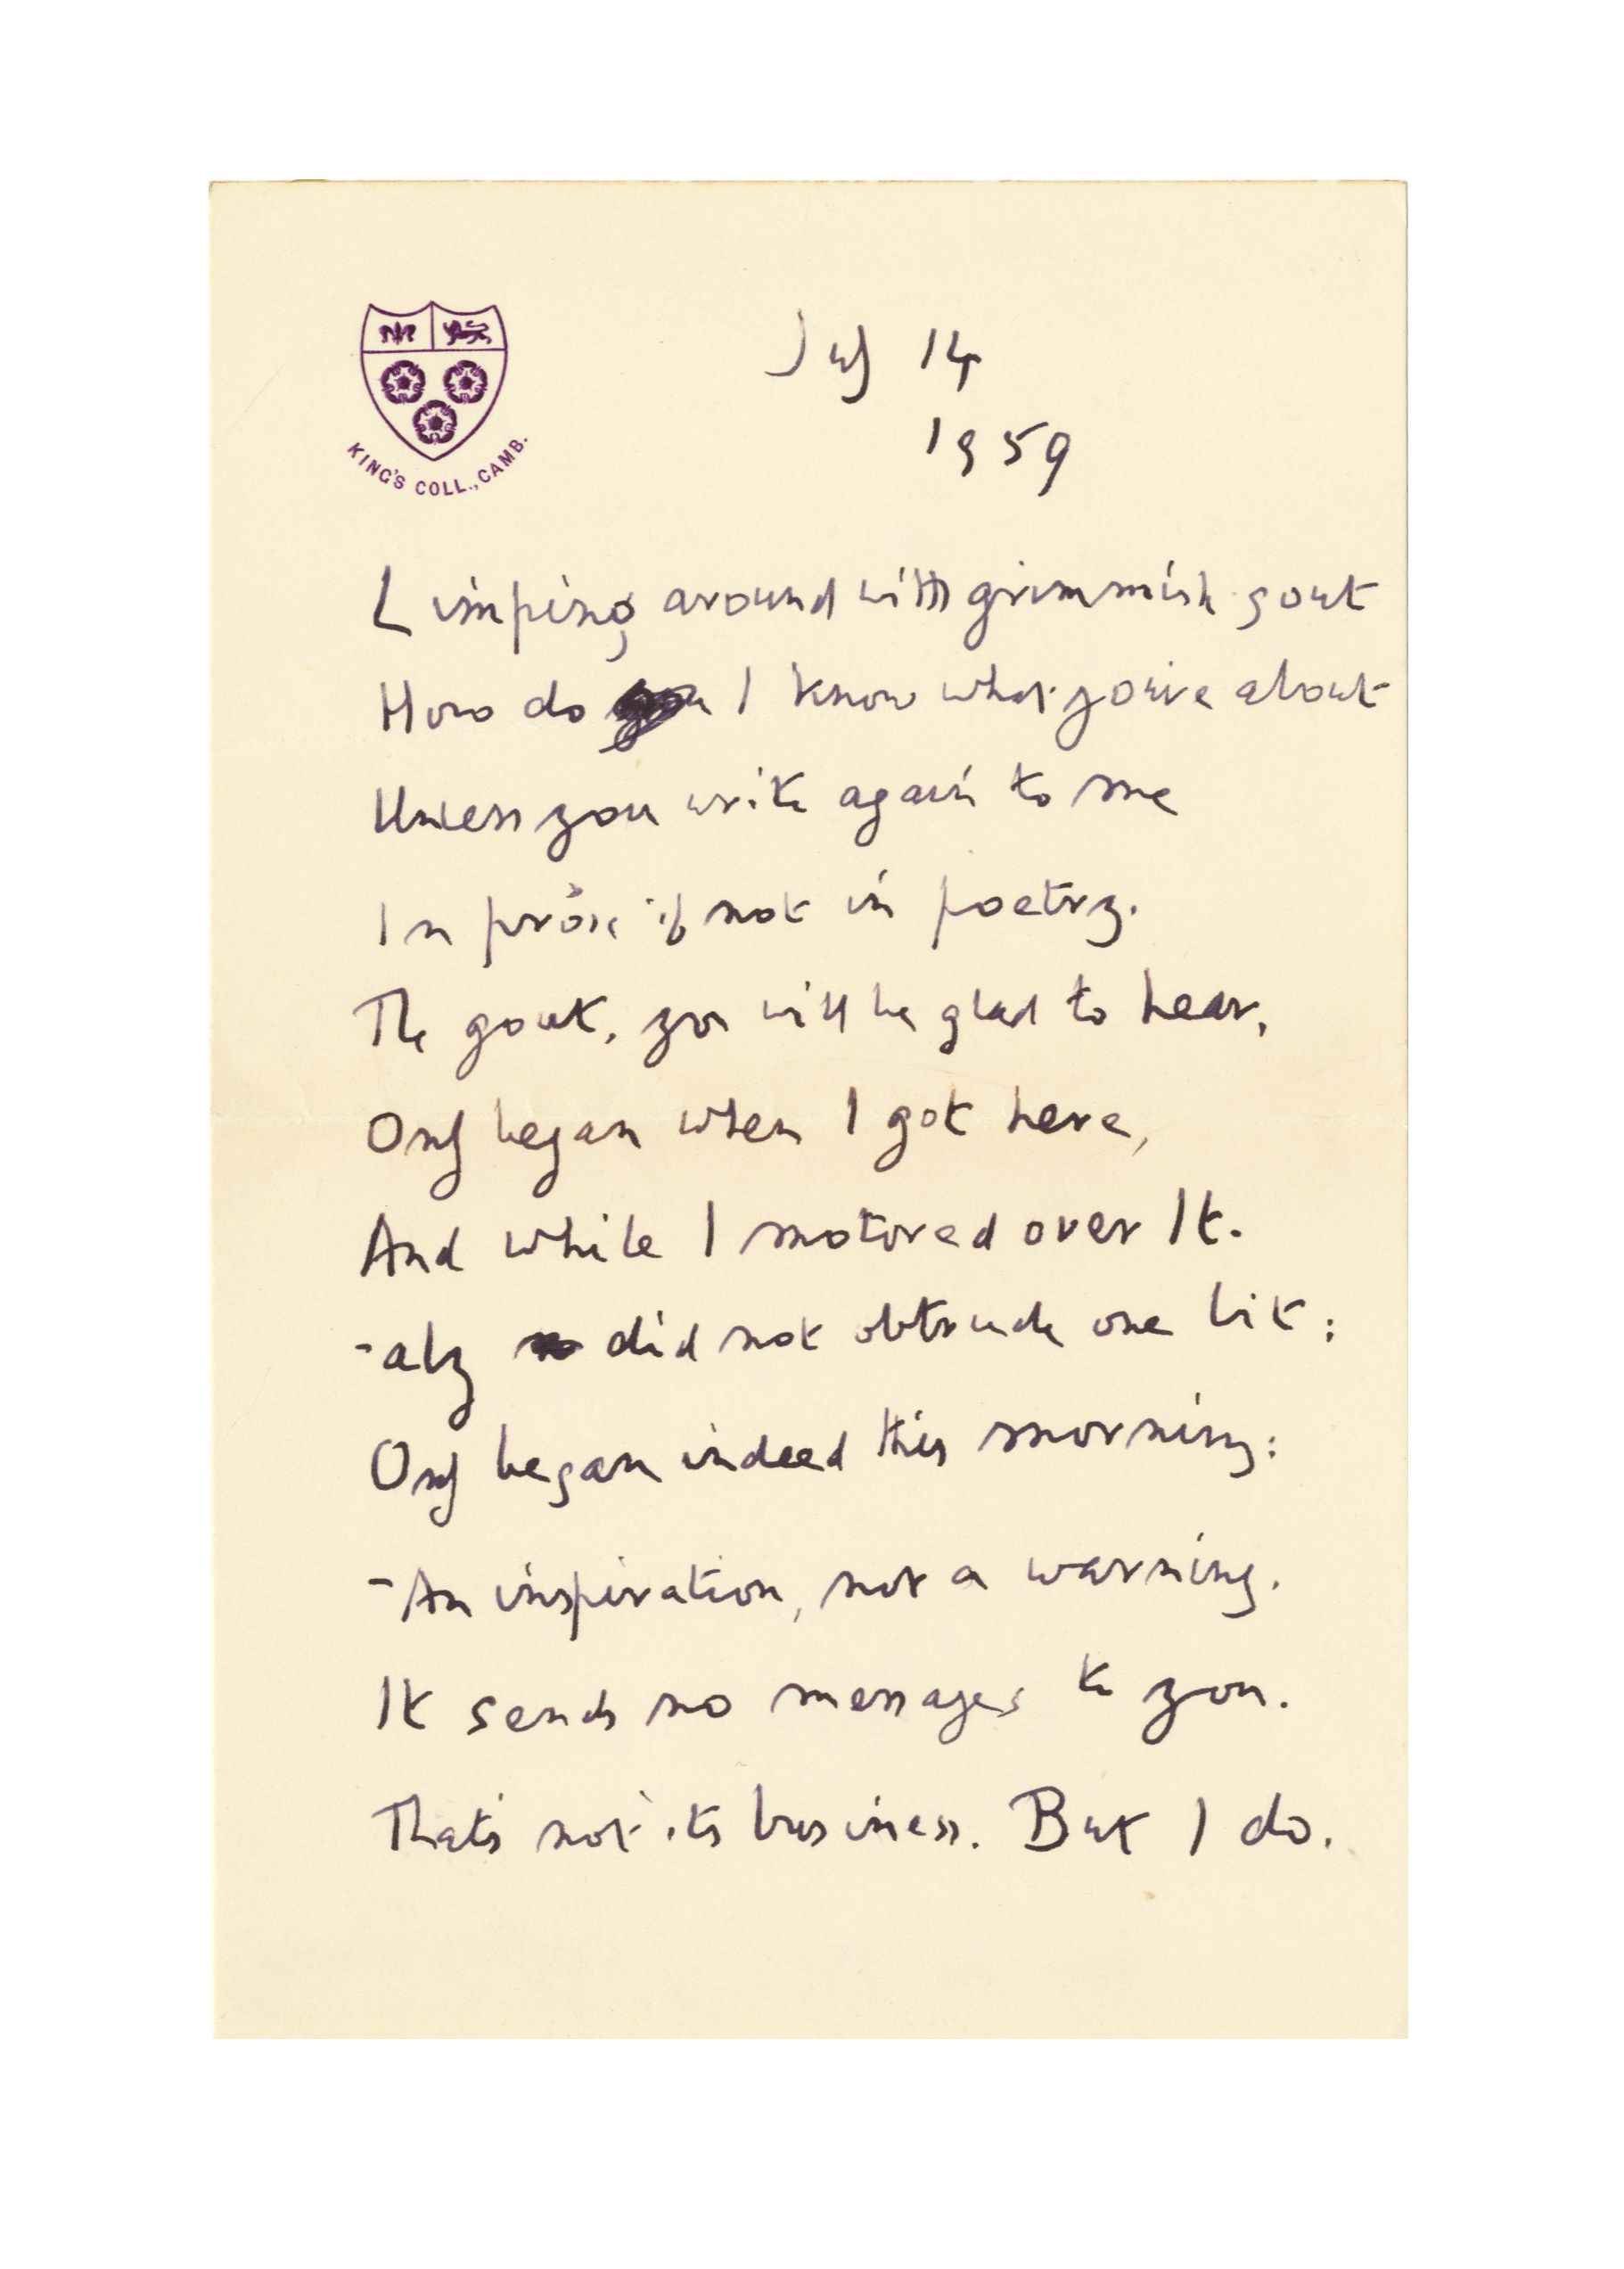 KING'S COLL., CAMB.
July 14
1959
Limping around with grimmish gout
How do I know what you're about
Unless you write again to me
In prose if not in poetry.
The gout, you will be glad to hear,
Only began when I got here,
And while I motored over It-
-aly did not obtrude one bit:
Only began indeed this morning:
-An inspiration, not a warning.
It sends no messages to you.
That's not its business. But I do.